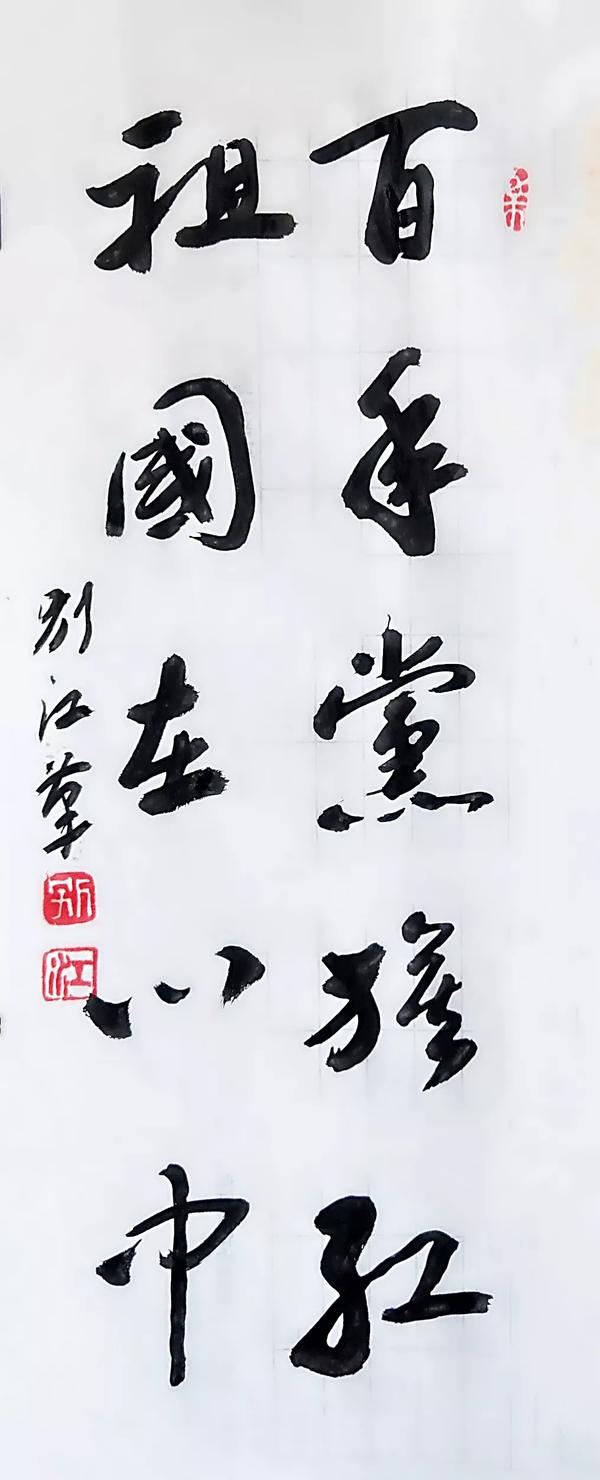 百年黨旗紅
祖國在心中
别江草
江